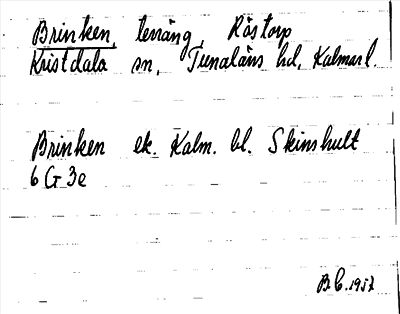 Brinken, terräng, Röstorp
Kristdala sn, Tunaläns hd, Kalmar l.
Brinken ek. Kalm. bl. Skinshult
6 G 3e
B.C. 1957